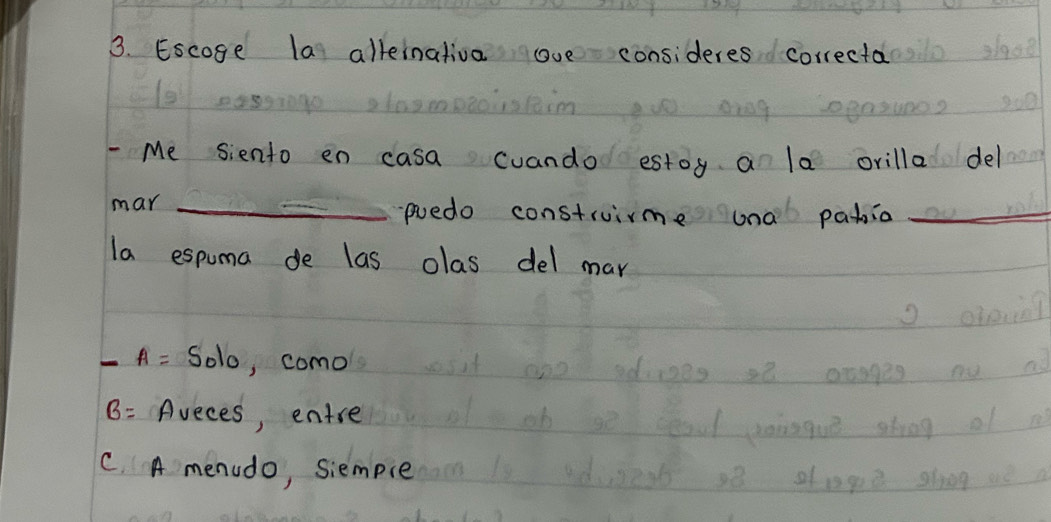 3. Escoge la alternativa que consideres correcta
- Me siento en casa cuando estoy a la orilla del
mar ________ puedo construirme una patria ________
la espuma de las olas del mar
- A= Solo, como
B= Aveces, entre
C. A menudo, siempre